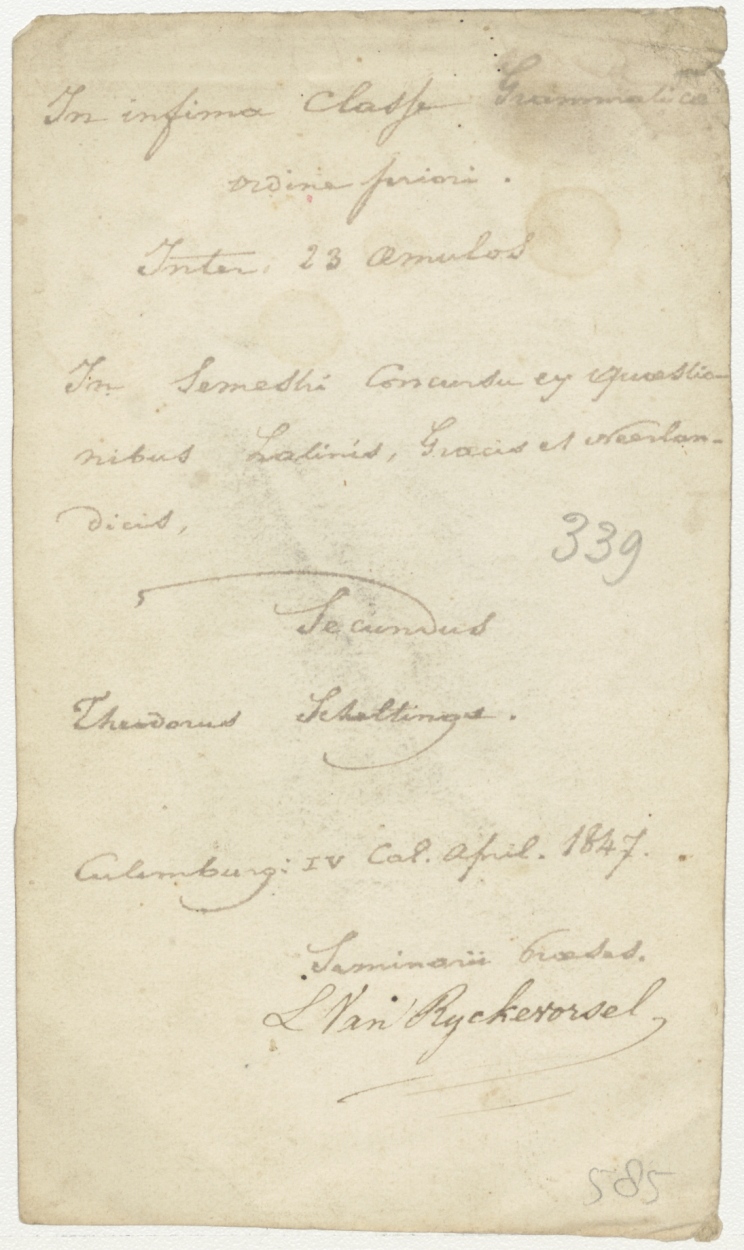 In infima Classe Grammaticæ
ordine priori.
Inter 23 æmulos
In Semestri Concursu ex Quæstio-
nibus Latinis, Græcis et Neerlan-
dicis,
339
Secundus
Theodorus Scheltinga.
Culemburgi IV Cal. April. 1847.
Seminarii Præses.
L Van Ryckevorsel
585